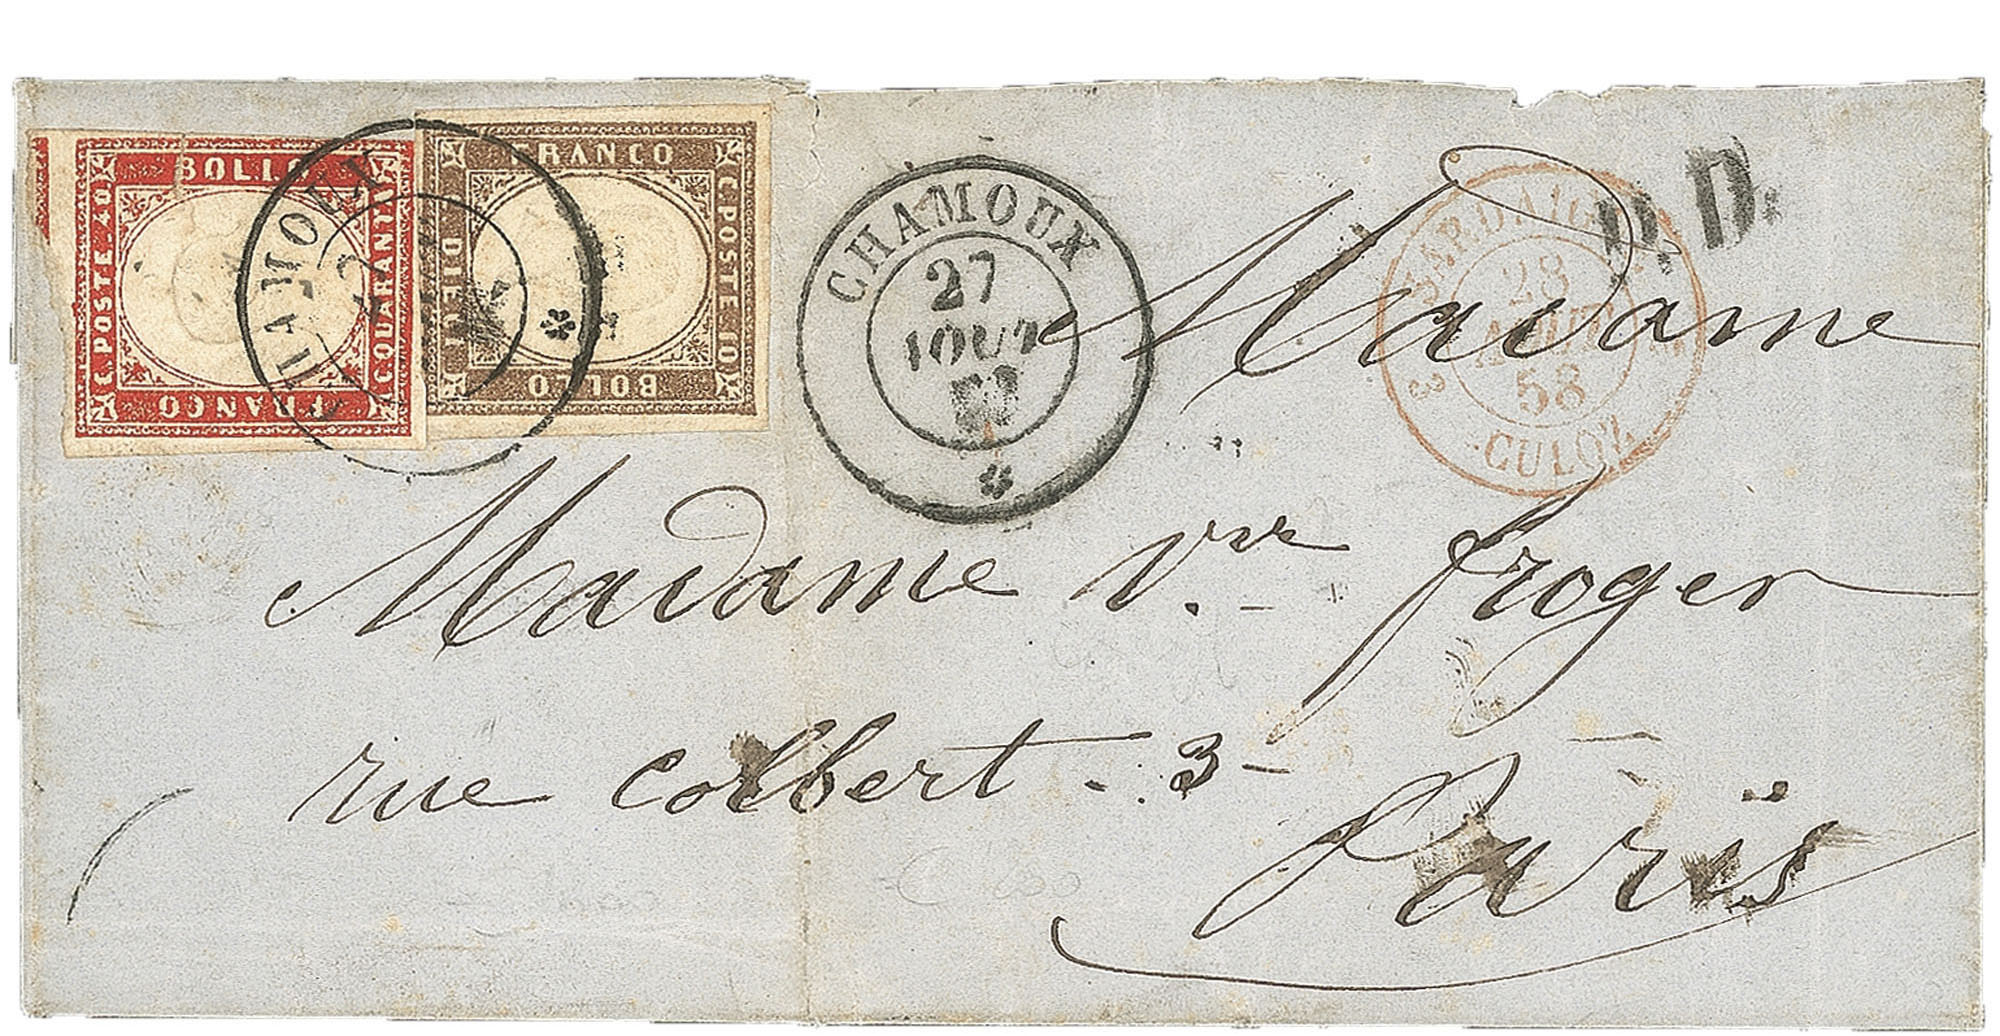 BOLLO
C. POSTE. 40
C. QUARANTA
FRANCO
FRANCO
C. POSTE 10
DIECI
BOLLO
CHAMOUX
CHAMOUX
27
AOUT
SARDAIGNE
28
AOUT
58
3
CULOZ
P.D.
Madame
Madame Vve froger
rue colbert - 3 -
Paris